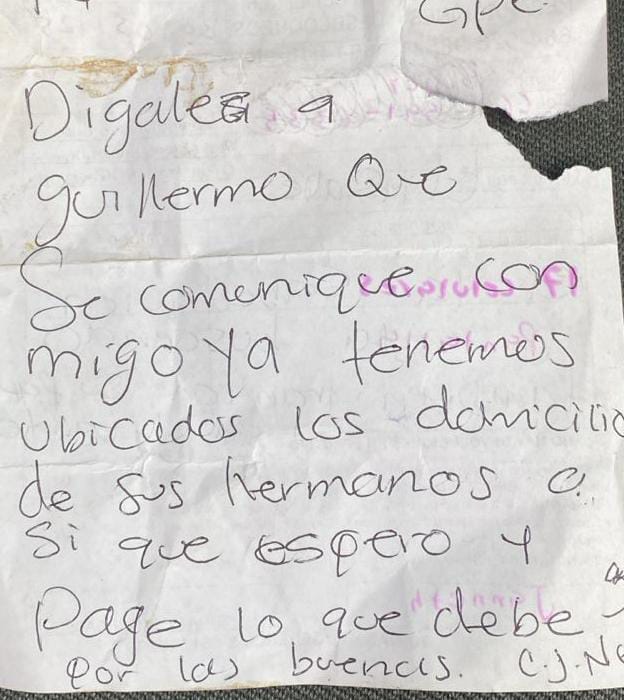 GPe
Digales a
guillermo Que
Se comunique con
migo ya tenemos
Ubicados los domicilio
de sus hermanos a
si que espero y
Page lo que debe
por las buenas. C.J.N